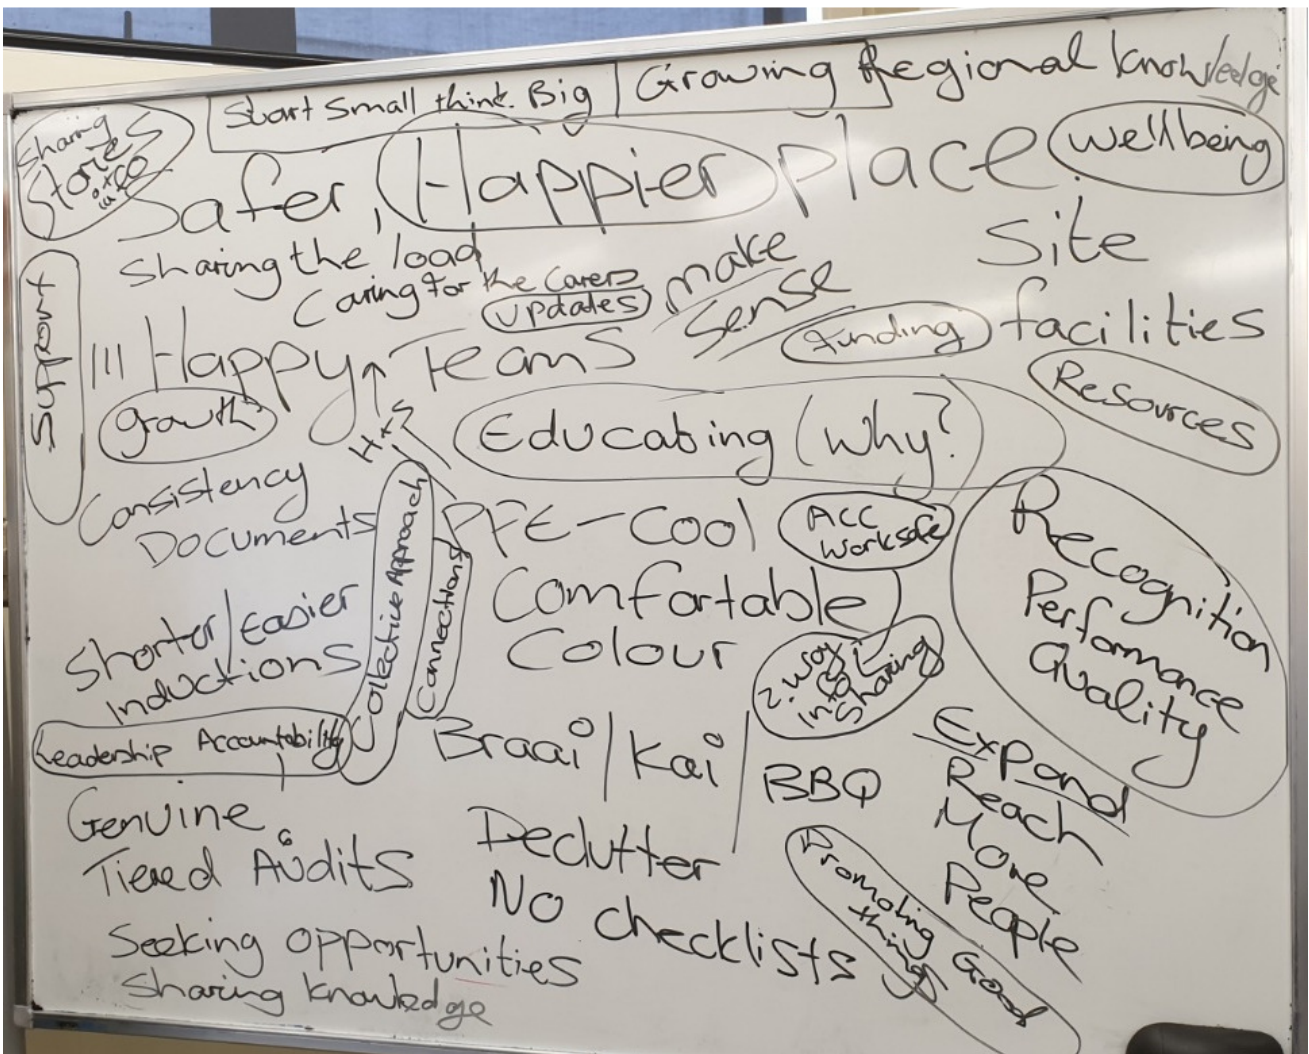 Start Small think Big
Growing Regional knowledge
Sharing
Stories
Safer, Happier place.
wellbeing
Sharing the load
Caring for the Carers
updates
make
sense
Site
facilities
funding
Resources
Support
Happy Teams
growth
H+S
Educating (Why?
Consistency
Documents
Collective Approach
Connections
PPE - Cool
Comfortable
Colour
ACC
Worksafe
Recognition
Performance
Quality
Shorter/Easier
Inductions
2 way
info
Sharing
Leadership Accountability
Braai/Kai
BBQ
Expand
Reach
More
People
Genuine
Tiered Audits
Declutter
No checklists
Promoting Good
things
Seeking opportunities
Sharing knowledge